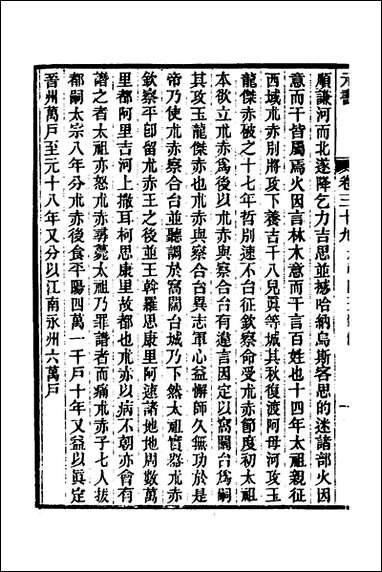 元書
卷三十九
順謙河而北遂降乞力吉思並撼哈納烏斯客思的迷諸部火因
意而干皆屬焉火因言林木意而干言百姓也十四年太祖親征
西域朮赤別將攻下養吉干八兒眞等城其秋復渡阿母河攻玉
龍傑赤破之十七年哲別速不台征欽察命受朮赤節度初太祖
本欲立朮赤爲後以朮赤與察合台有違言因定以窩闊台爲嗣
其攻玉龍傑赤也朮赤與察合台異志軍心益懈師久無功於是
帝乃使朮赤察合台並聽調於窩闊台城乃下然太祖實器朮赤
欽察平卽留朮赤王之後並王斡羅思康里阿速諸地地周數萬
里都阿里吉河上撒耳柯思康里故都也朮赤以病不朝亦會有
譖之者太祖亦怒朮赤尋薨太祖乃罪譖者而痛朮赤子七人拔
都嗣太宗八年分朮赤後食平陽四萬一千戸十年又益以眞定
晉州萬戸至元十八年又分以江南永州六萬戸